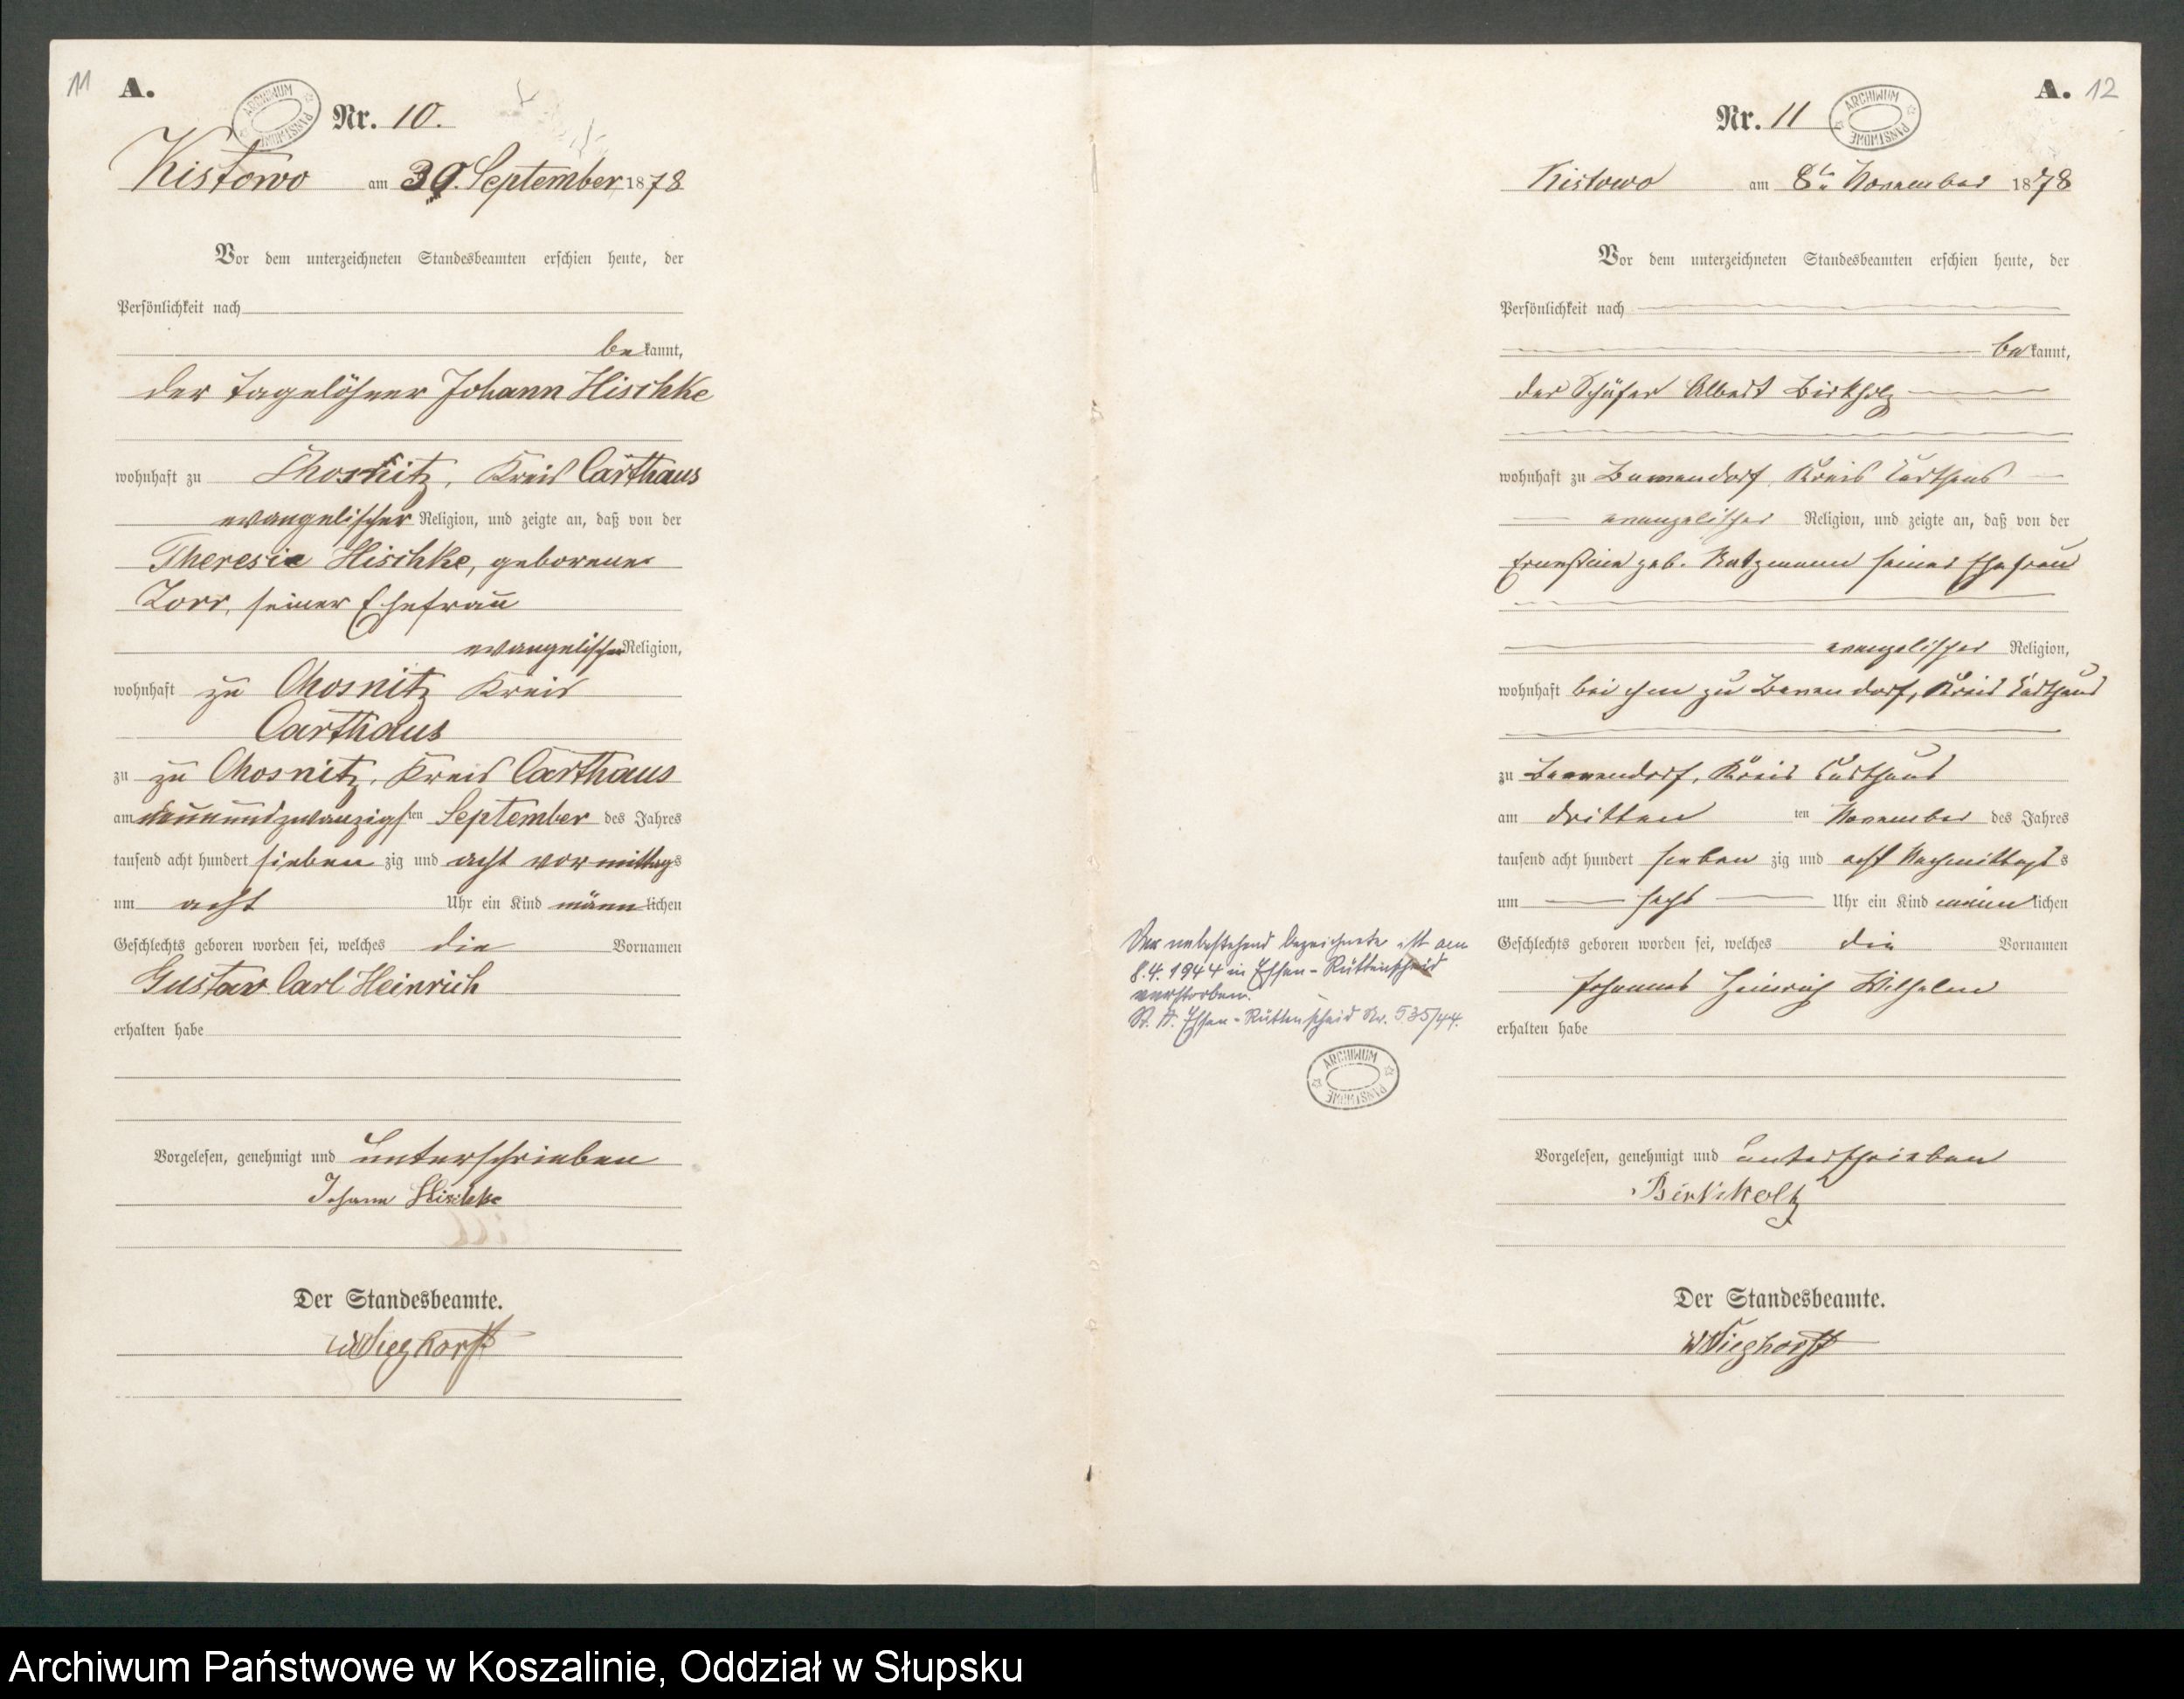 11
A.
ARCHIWUM PAŃSTWOWE
Nr. 10.
Kistowo am 30. September 1878
Vor dem unterzeichneten Standesbeamten erschien heute, der
Persönlichkeit nach
bekannt,
der Tagelöhner Johann Hischke
wohnhaft zu Chosnitz, Kreis Carthaus
evangelischer Religion, und zeigte an, daß von der
Theresia Hischke, geborener
Zorr, seiner Ehefrau
evangelischer Religion,
wohnhaft zu Chosnitz Kreis
Carthaus
zu zu Chosnitz, Kreis Carthaus
am neunundzwanzigsten September des Jahres
tausend acht hundert siebenzig und acht vormittags
um acht Uhr ein Kind männlichen
Geschlechts geboren worden sei, welches die Vornamen
Gustav Carl Heinrich
erhalten habe
Vorgelesen, genehmigt und unterschrieben
Johann Hischke
Der Standesbeamte.
W Sieghorst
A. 12
Nr. 11
ARCHIWUM PAŃSTWOWE
Kistowo am 8ten November 1878
Vor dem unterzeichneten Standesbeamten erschien heute, der
Persönlichkeit nach
bekannt,
der Schäfer Albert Birkholz
wohnhaft zu Kreis Carthaus
evangelischer Religion, und zeigte an, daß von der
Ernestine geb. Ratzmann seiner Ehefrau
evangelischer Religion,
wohnhaft bei ihm zu Kreis Carthaus
zu Kreis Carthaus
am dritten ten November des Jahres
tausend acht hundert siebenzig und acht Nachmittags
um sechs Uhr ein Kind männlichen
Geschlechts geboren worden sei, welches die Vornamen
Johannes Heinrich Wilhelm
erhalten habe
Vorgelesen, genehmigt und unterschrieben
Birkholtz
Der Standesbeamte.
W Sieghorst
Der nebestehend bezeichnete ist am
8.4.1944 in Essen-Rüttenscheid
verstorben.
St. A. Essen-Rüttenscheid Nr. 535/44.
ARCHIWUM PAŃSTWOWE
Archiwum Państwowe w Koszalinie, Oddział w Słupsku